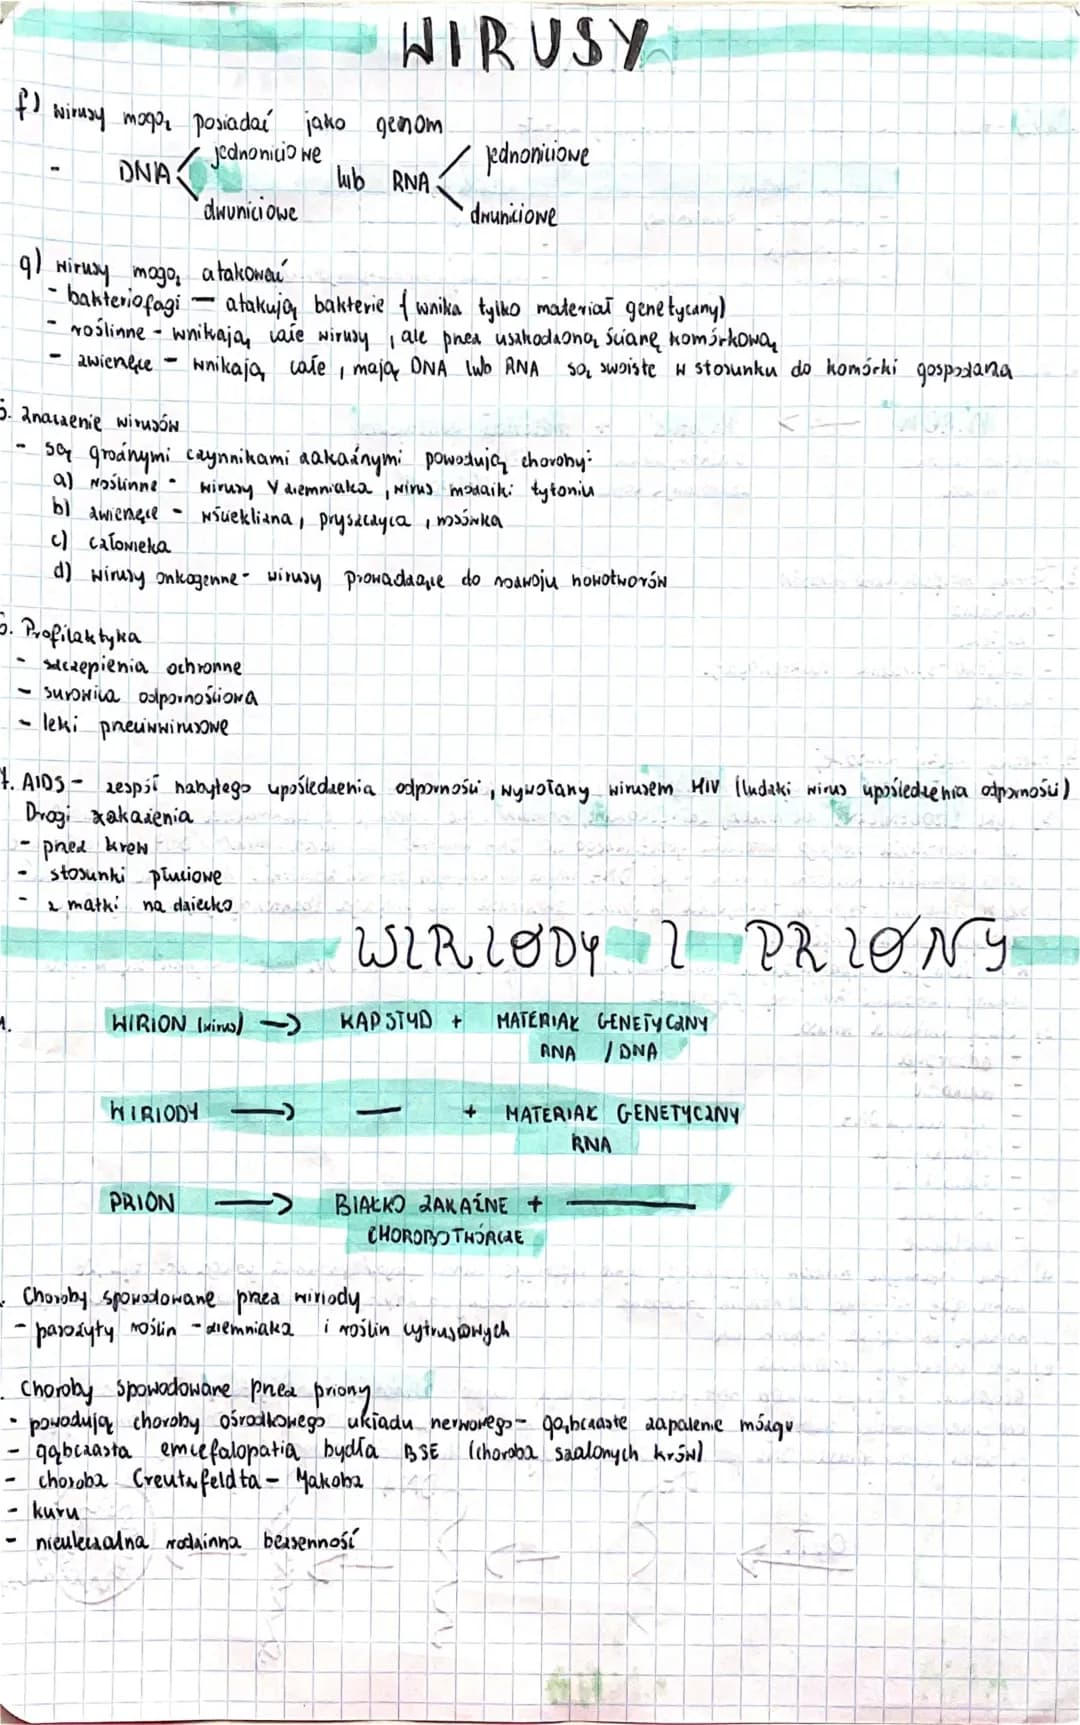 WIRUSY
f) wirusy mogą posiadać jako genom
- DNA jednoniciowe dwuniciowe lub RNA jednoniciowe dwuniciowe
g) wirusy mogą atakować
- bakteriofagi – atakują bakterie (wnika tylko materiał genetyczny)
- roślinne - wnikają całe wirusy, ale przez uszkodzoną ścianę komórkową
- zwierzęce - wnikają całe, mają DNA lub RNA są swoiste w stosunku do komórki gospodarza
5. Znaczenie wirusów
- są groźnymi czynnikami zakaźnymi powodują choroby:
a) roślinne - wirusy Y ziemniaka, wirus mozaiki tytoniu
b) zwierzęce - wścieklizna, pryszczyca, nosówka
c) człowieka
d) wirusy onkogenne - wirusy prowadzące do rozwoju nowotworów
6. Profilaktyka
- szczepienia ochronne
- surowica odpornościowa
- leki przeciwwirusowe
7. AIDS - zespół nabytego upośledzenia odporności, wywołany wirusem HIV (ludzki wirus upośledzenia odporności)
Drogi zakażenia
- przez krew
- stosunki płciowe
- z matki na dziecko
WIRIODY I PRIONY
1. WIRION (wirus) → KAPSYD + MATERIAŁ GENETYCZNY
RNA / DNA
WIRIODY → — + MATERIAŁ GENETYCZNY
RNA
PRION → BIAŁKO ZAKAŹNE + —
CHOROBOTWÓRCZE
. Choroby spowodowane przez wiriody
- pasożyty roślin - ziemniaka i roślin cytrusowych
. Choroby spowodowane przez priony
- powodują choroby ośrodkowego układu nerwowego - gąbczaste zapalenie mózgu
- gąbczasta emcefalopatia bydła BSE (choroba szalonych krów)
- choroba Creutzfeldta - Jakoba
- kuru
- nieuleczalna rodzinna bezsenność